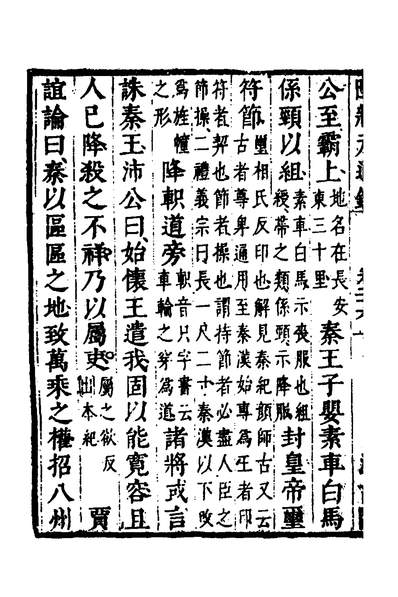 公至霸上地名在長安東三十里秦王子嬰素車白馬
係頸以組素車白馬示喪服也組綬帶之類係頸示降服封皇帝璽
符節璽相氏反印也解見秦紀顏師古又云古者尊卑通用至秦漢始專爲王者印
符者契也節者操也謂持節者必盡人臣之節操二禮義宗曰長一尺二寸秦漢以下改
爲旌幢之形降軹道旁軹音只字書云車輪之穿爲道諸將或言
誅秦王沛公曰始懷王遣我固以能寬容且
人已降殺之不祥乃以屬吏屬之欲反出本紀賈
誼論曰秦以區區之地致萬乘之權招八州